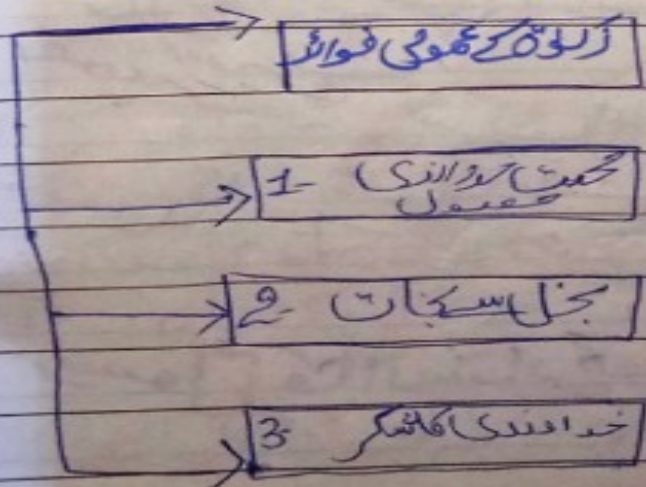 زکوٰۃ کے عمومی فوائد
1- محبت خداوندی
حصول
2- بخل سے نجات
3- خداوندی کا شکر